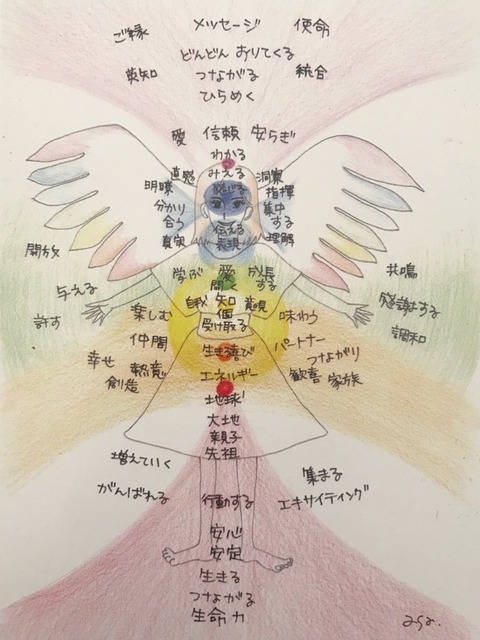 ご縁 メッセージ 使命
どんどん おりてくる
英知 つながる 統合
ひらめく
愛 信頼 安らぎ
わかる
直感 みえる 洞察
明瞭 感じる 指揮
分かり 集中
合う 伝える する
真実 表現 理解
開放 共鳴
学ぶ 愛 成長
与える 開 する 感謝する
自我 知 意見
許す 楽しむ 個 味わう 調和
受け取る
仲間 パートナー
幸せ 生きる喜び つながり
熱意 エネルギー 歓喜 家族
創造
地球
大地
親子
増えていく 先祖
集まる
がんばれる 行動する エキサイティング
安心
安定
生きる
つながる
生命力